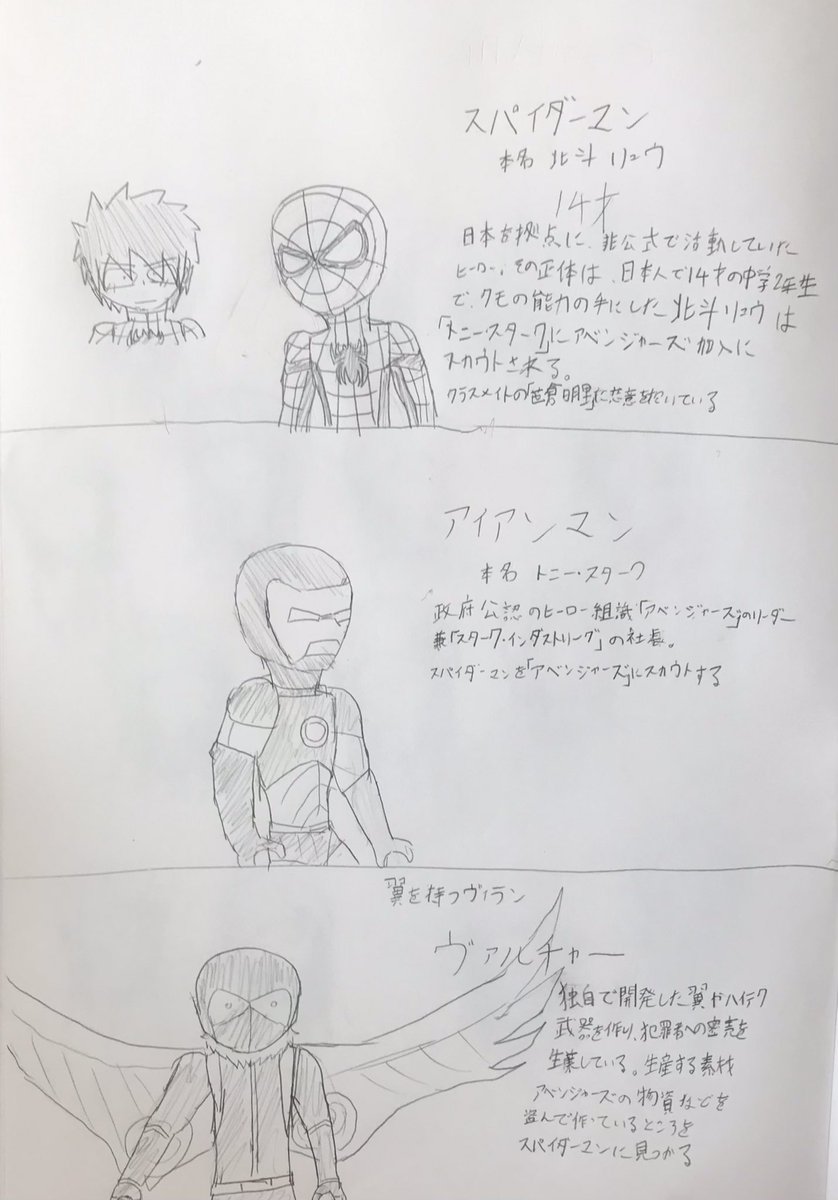 スパイダーマン
本名 北斗 リュウ
14才
日本を拠点に、非公式で活動していた
ヒーロー、その正体は、日本人で14才の中学2年生
で、クモの能力の手にした北斗リュウは
「トニー・スターク」にアベンジャーズ加入に
スカウト来る。
クラスメイトの「倉明星」に恋意を抱いている
アイアンマン
本名 トニー・スターク
政府公認のヒーロー組織「アベンジャーズ」のリーダー
兼「スターク・インダストリーグ」の社長。
スパイダーマンを「アベンジャーズ」にスカウトする
翼を持つヴィラン
ヴァルチャー
独自で開発した翼やハイテク
武器を作り、犯罪者への密売を
生業している。生産する素材
アベンジャーズの物資などを
盗んで作っているところを
スパイダーマンに見つかる